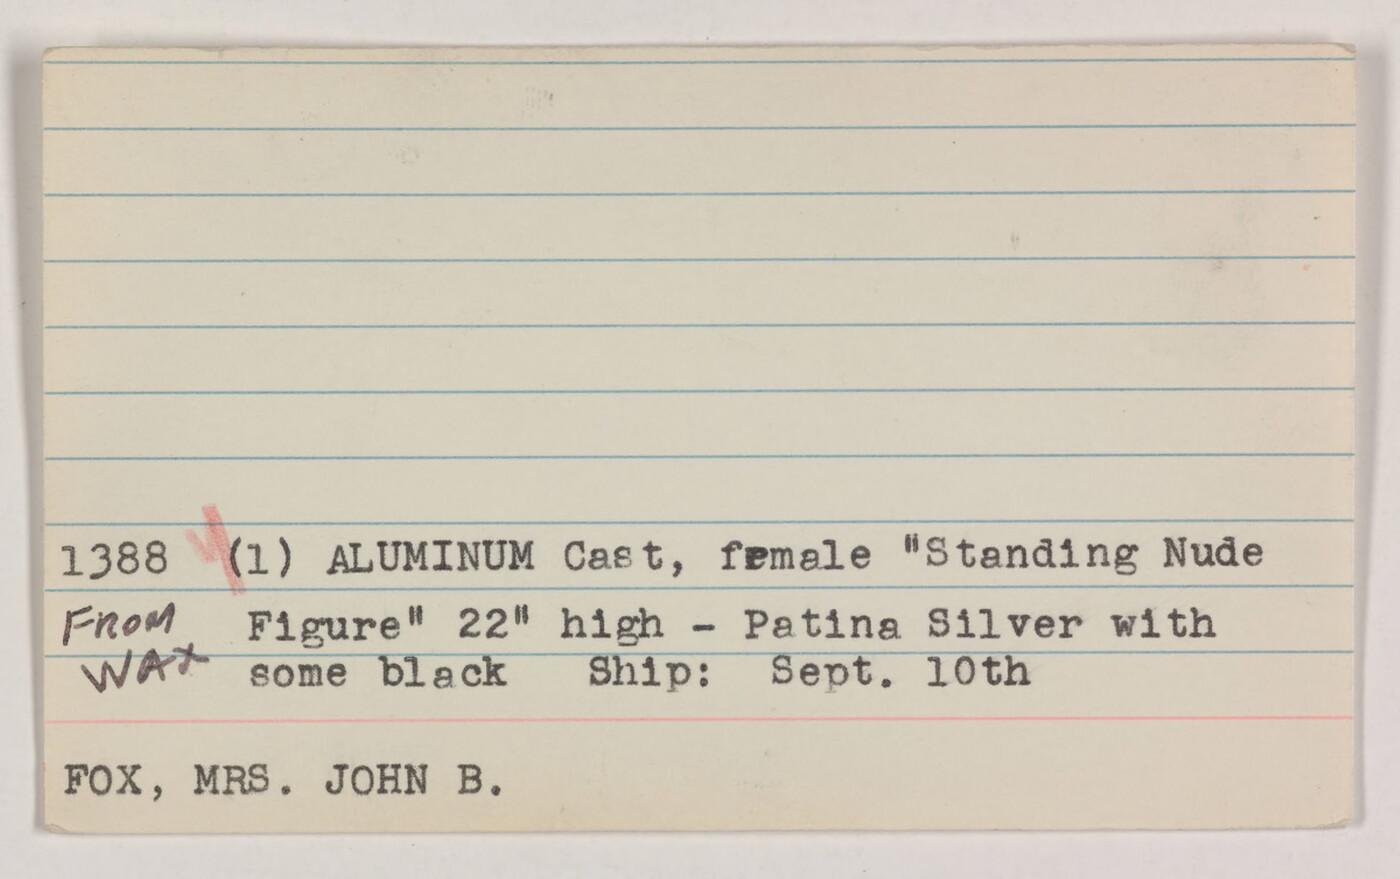 1388 (1) ALUMINUM Cast, female "Standing Nude
FROM Figure" 22" high - Patina Silver with
WAX some black Ship: Sept. 10th
FOX, MRS. JOHN B.